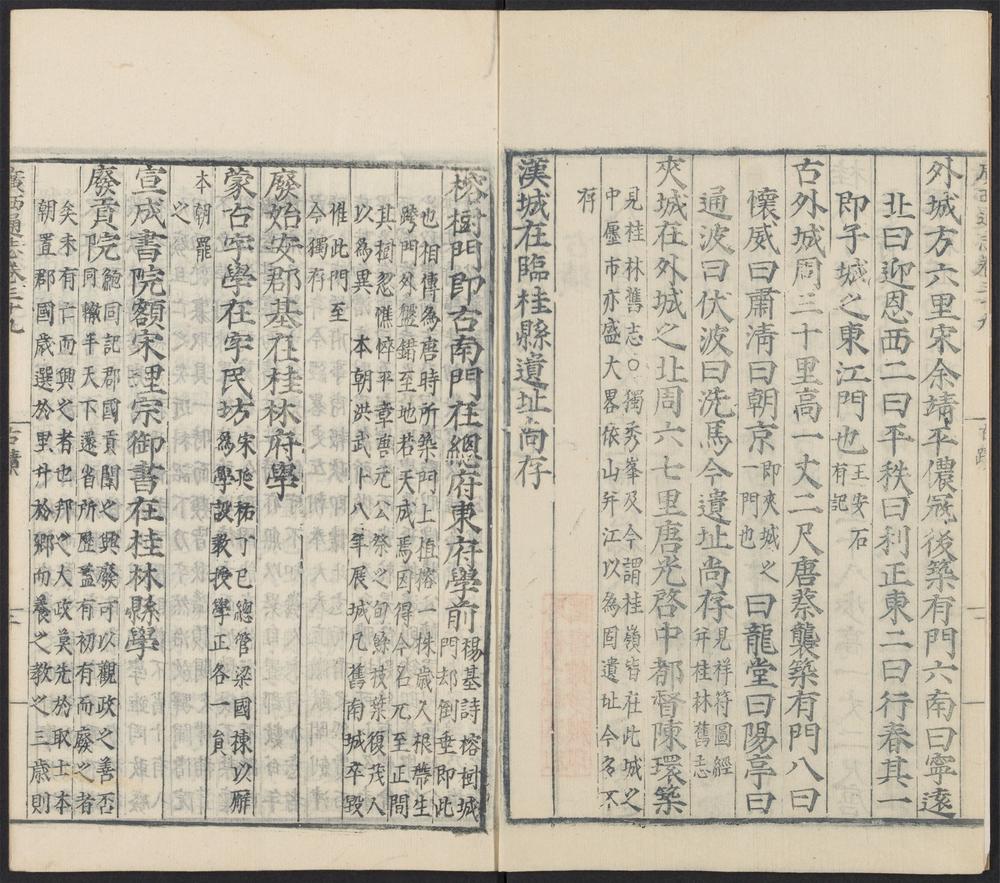 外城方六里宋余靖平儂冦後築有門六南曰寧遠
北曰迎恩西二曰平秩曰利正東二曰行春其一
即子城之東江門也王安石
有記
古外城周三十里高一丈二尺唐蔡襲築有門八曰
懷威曰肅清曰朝京即夾城之
一門也曰龍堂曰陽亭曰
通波曰伏波曰洗馬今遺址尚存見祥符圖經
并桂林舊志
夾城在外城之北周六七里唐光啓中都督陳環築
見桂林舊志○獨秀峯及今謂桂嶺皆在此城之
中廛市亦盛大畧依山并江以為固遺址今多不
存
漢城在臨桂縣遺址尚存
榕樹門即古南門在總府東府學前楊基詩榕樹城
門却倒垂即此
也相傳為唐時所築門上植榕一株歲久根蔕生
跨門外盤錯至地若天成焉因得今名元至正間
其樹忽憔悴平章
公祭之旬餘枝葉復茂人
以為異本朝洪武卄八年展城凡舊南城卒毀
惟此門至
今獨存
廢始安郡基在桂林府學
蒙古字學在字民坊宋延祐丁巳總管梁國棟以廨
為學設教授學正各一員
本朝罷
之
宣成書院額宋理宗御書在桂林縣學
廢貢院鮑同記郡國貢闈之興廢可以觀政之善否
同轍乎天下遠省所歷蓋有初有而廢之者
矣未有亡而興之者也邦之大政莫先於取士本
朝置郡國歲選於里升於鄉而養之教之三歲則
廣西通志卷三十九
古蹟